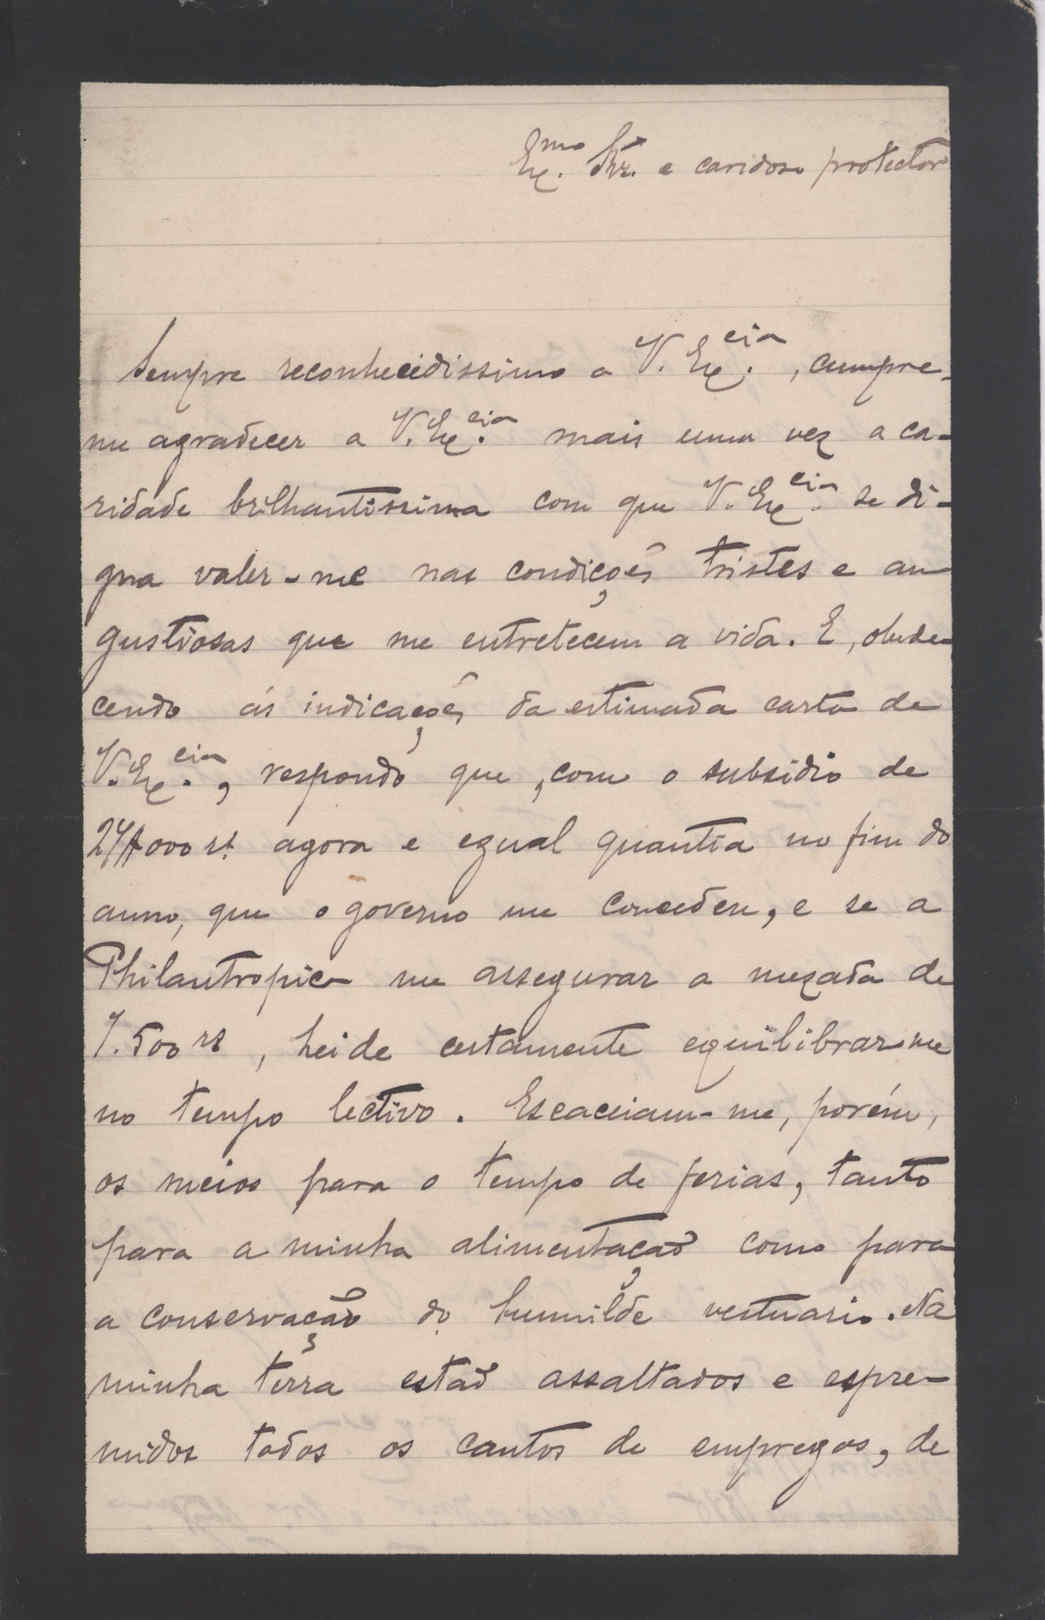 Ex.mo Snr. e caridoso protector
Sempre reconhecidissimo a V. Ex.cia, cumpre-
me agradecer a V. Ex.cia mais uma vez a ca-
ridade brilhantissima com que V. Ex.cia se di-
gna valer-me nas condições tristes e an
gustiosas que me entretecem a vida. E, obede-
cendo ás indicações da estimada carta de
V. Ex.cia, respondo que, com o subsidio de
24$000 rs. agora e egual quantia no fim do
anno, que o governo me concedeu, e se a
Philantropica me assegurar a mezada de
7.500 rs, heide certamente equilibrar-me
no tempo lectivo. Escaceiam-me, porém,
os meios para o tempo de ferias, tanto
para a minha alimentação como para
a conservação do humilde vestuario. Na
minha terra estão assaltados e espre-
midos todos os cantos de empregos, de